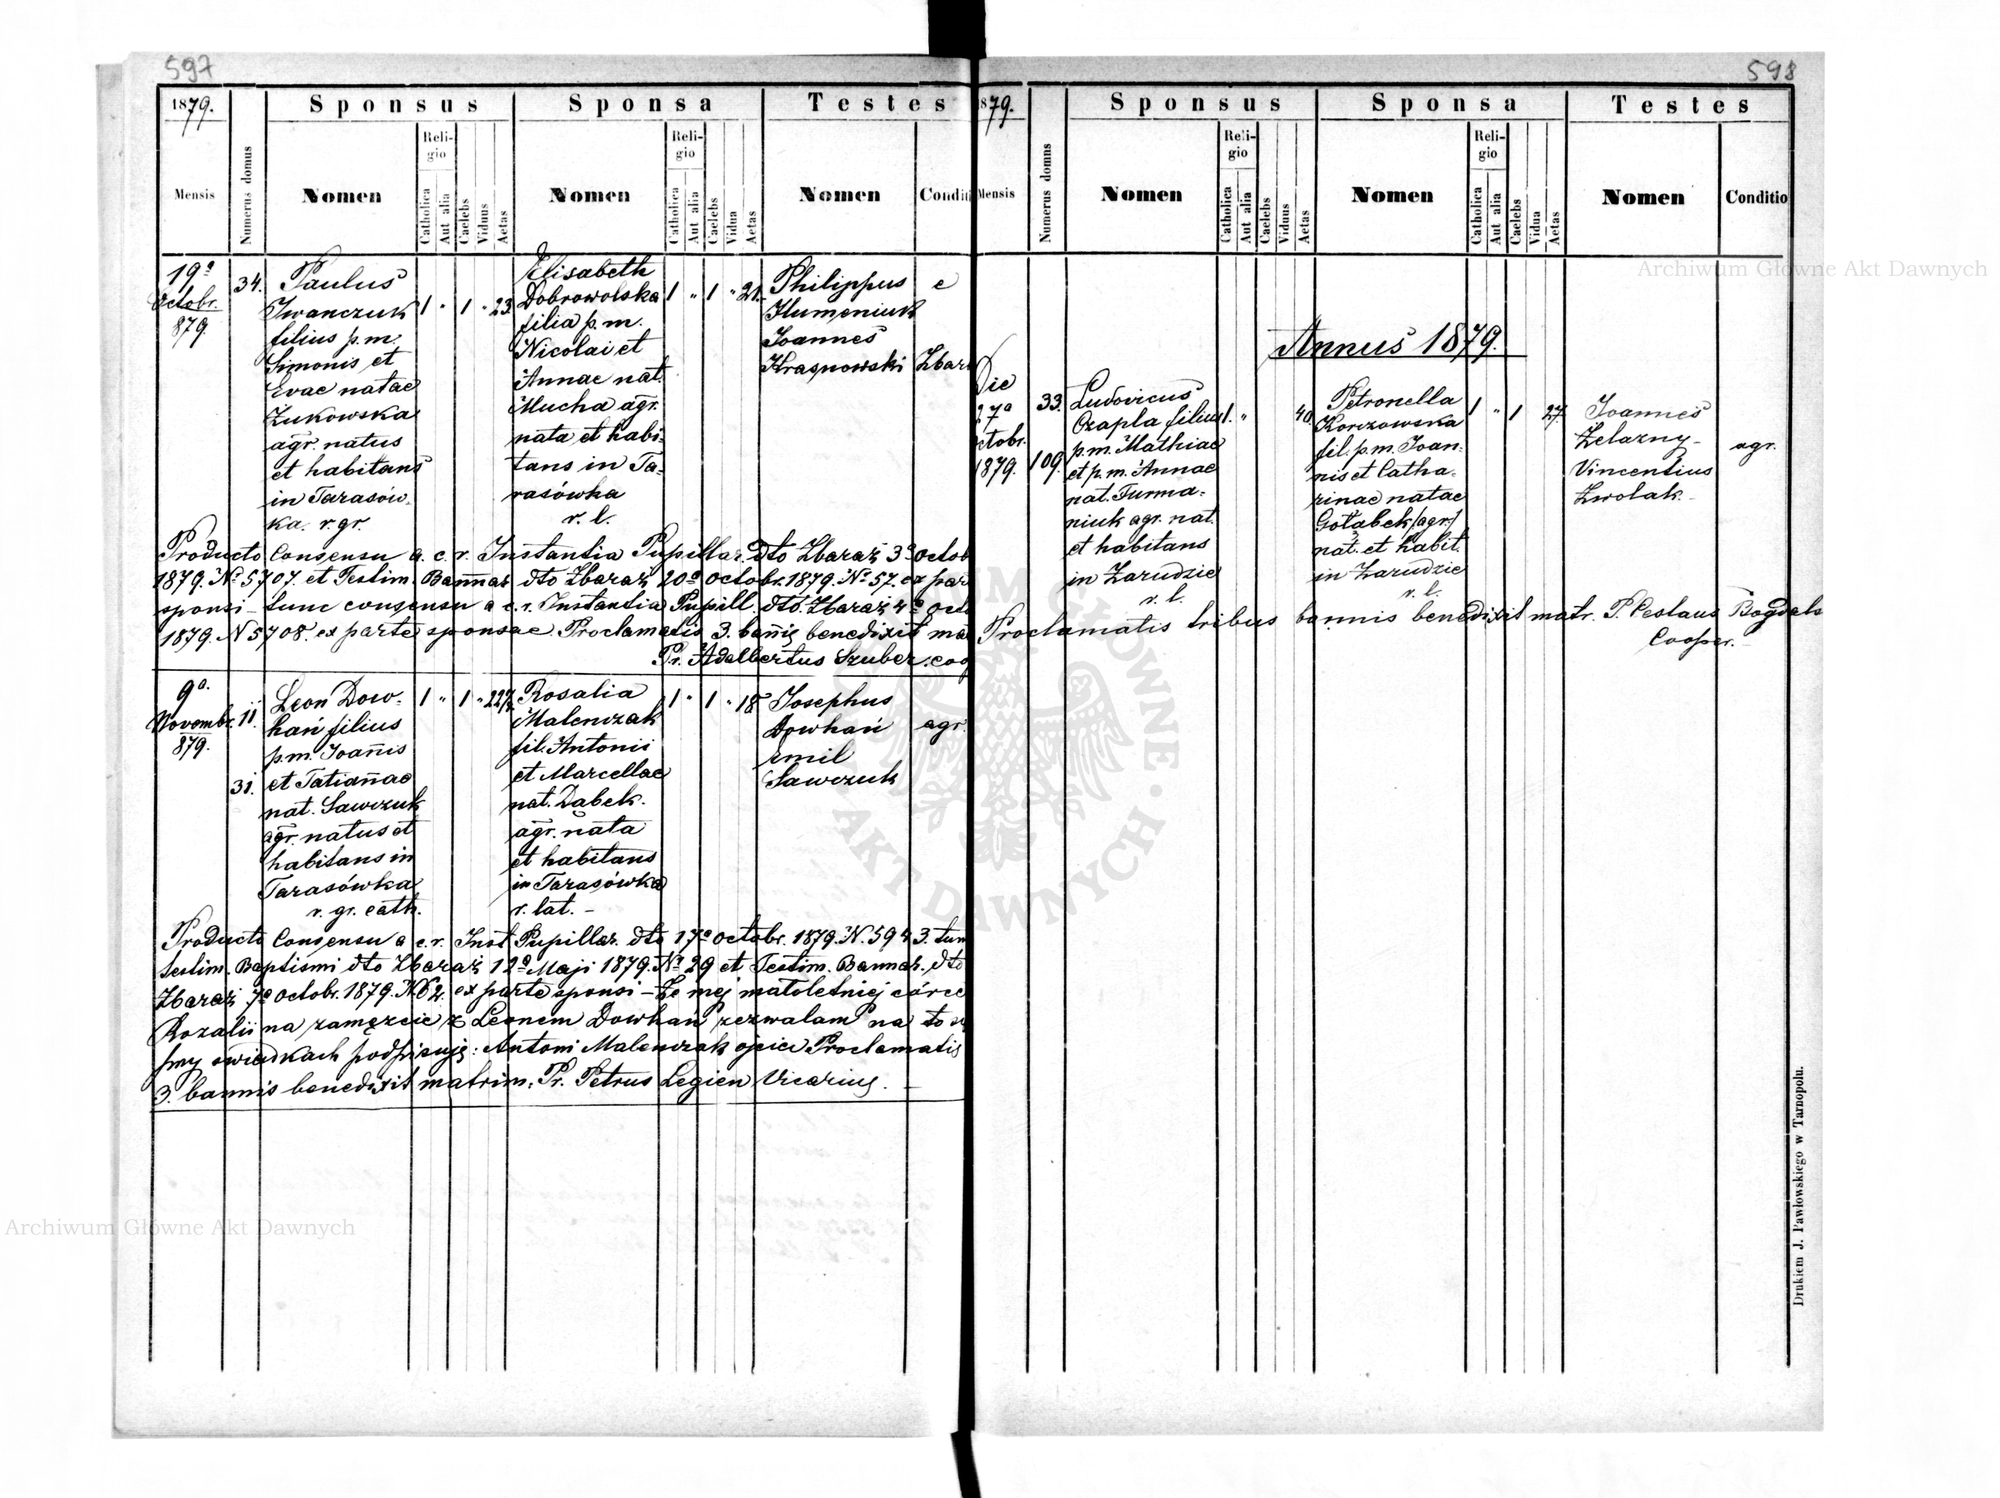 597
1879.
Sponsus
Sponsa
Testes
Mensis
Numerus domus
Nomen
Religio
Catholica
Aut alia
Caelebs
Viduus
Aetas
Nomen
Religio
Catholica
Aut alia
Caelebs
Vidua
Aetas
Nomen
Conditi
19a Octobr. 879.
34.
Paulus
Iwanczuk
filius p.m.
Simonis et
Evae natae
Żukowska
agr. natus
et habitans
in Tarasów-
ka. r. gr.
1 " 1 " 23.
Elisabeth
Dobrowolska
filia p.m.
Nicolai et
Annae nat.
Mucha agr.
nata et habi-
tans in Ta-
rasówka
r. l.
1 " 1 " 21.
Philippus
Humeniuk
Joannes
Krasnowski
Producto Consensu a. c. r. Instantia Pupillar. dto Zbaraż 3a Octob
1879. No 5707. et Testim. Bannar. dto Zbaraż 20a Octobr. 1879. No 57. ex par
sponsi - tunc consensu a c. r. Instantia Pupill. dto. Zbaraż 4a Octo
1879. N 5708. ex parte sponsae. Proclamatis 3. bannis benedixit ma
Pr. Adalbertus Szuber. coo
9a.
Novembr.
879.
11.
31.
Leon Dow-
hań filius
p.m. Joannis
et Tatiannae
nat. Sawczuk
agr. natus et
habitans in
Tarasówka
r. gr. cath.
1 " 1 "
Rosalia
Malenczak
fil. Antonii
et Marcellae
nat. Dąbek.
agr. nata
et habitans
in Tarasówka
r. lat. -
1 " 1 " 18
Josephus
Dowhań
Emil
Sawczuk
agr.
Producto Consensu a c. r. Inst. Pupillar. dto 17a Octobr. 1879. N. 5943. tum
testim. Baptismi dto Zbaraż 12a Maji 1879. No 29 et Testim. Bannar. dto
Zbaraż 7a Octobr. 1879. N. 62. ex parte sponsi - Że mej małoletniej córce
Rozalii na zamęzcie z Leonem Dowhań zezwalam na to
przy świadkach podpisuję: Antoni Malenczak ojciec Proclamatis
3. bannis benedixit matrim: Pr. Petrus Legien Vicarius. -
598
1879.
Sponsus
Sponsa
Testes
Mensis
Numerus domus
Nomen
Religio
Catholica
Aut alia
Caelebs
Viduus
Aetas
Nomen
Religio
Catholica
Aut alia
Caelebs
Vidua
Aetas
Nomen
Conditio
Annus 1879.
Die
27a
ctobr.
1879.
33.
109.
Ludovicus
Czapla filius
p.m. Mathiae
et p.m. Annae
nat. Furma-
niuk agr. nat.
et habitans
in Zarudzie
r. l.
1. " 40
Petronella
Korczowska
fil. p.m. Joan-
nis et Catha-
rinae natae
Gołąbek /agr./
nat. et habit.
in Zarudzie
r. l.
1 " 1 27.
Joannes
Żelazny -
Vincentius
Zwolak. -
agr.
Proclamatis tribus bannis benedixit matr. P. Ceslaus Bogdals
Cooper. -
Drukiem J. Pawłowskiego w Tarnopolu.
Archiwum Główne Akt Dawnych
Archiwum Główne Akt Dawnych
AKT DAWNYCH